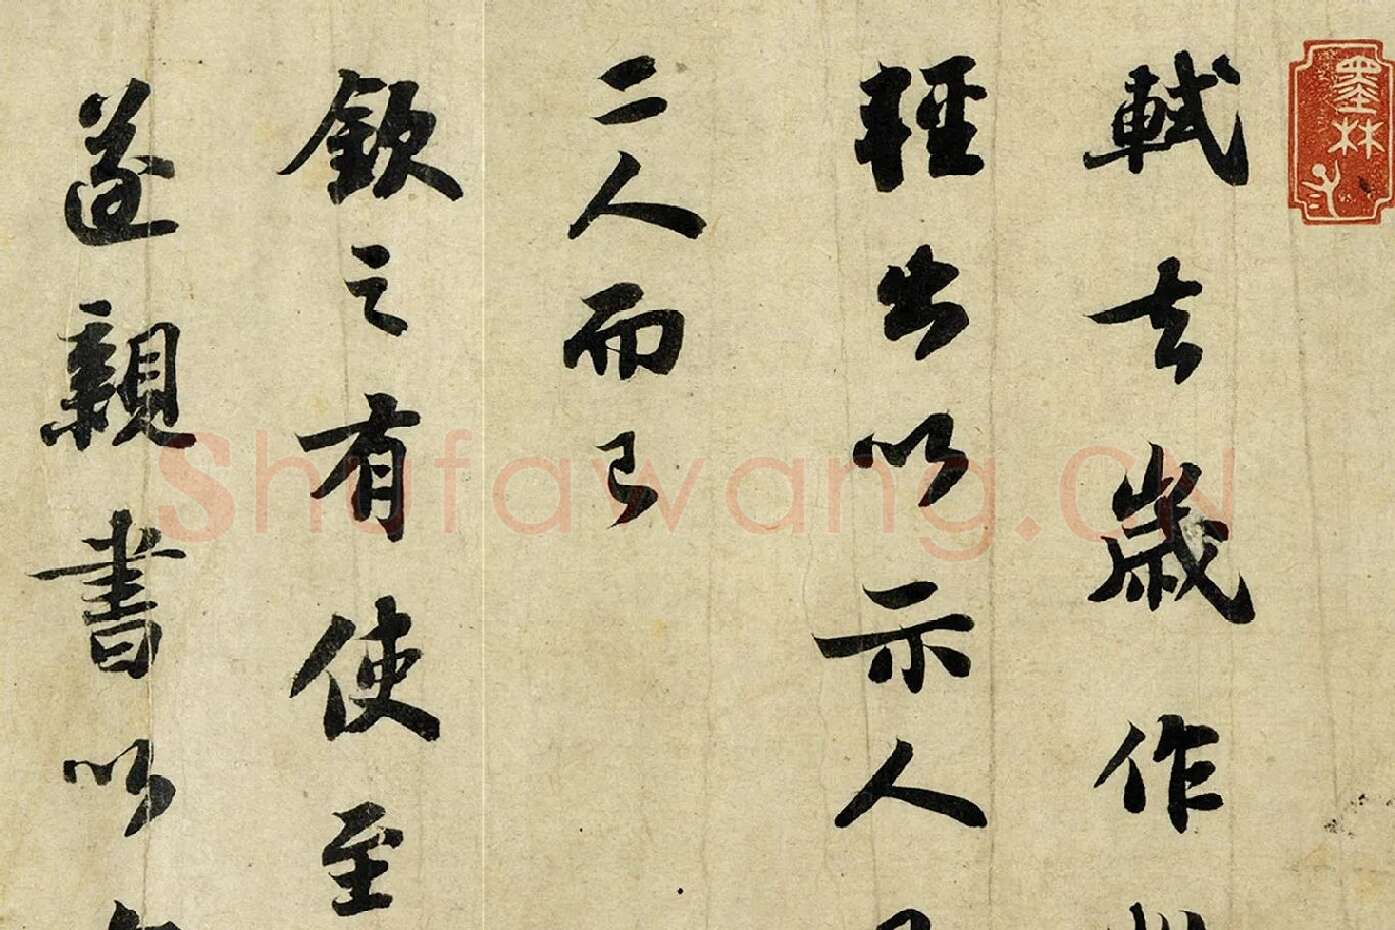 軾去歲作
輕出以示人
二人而已
欽之有使至
遂親書以
墨林
Shufawang.CN